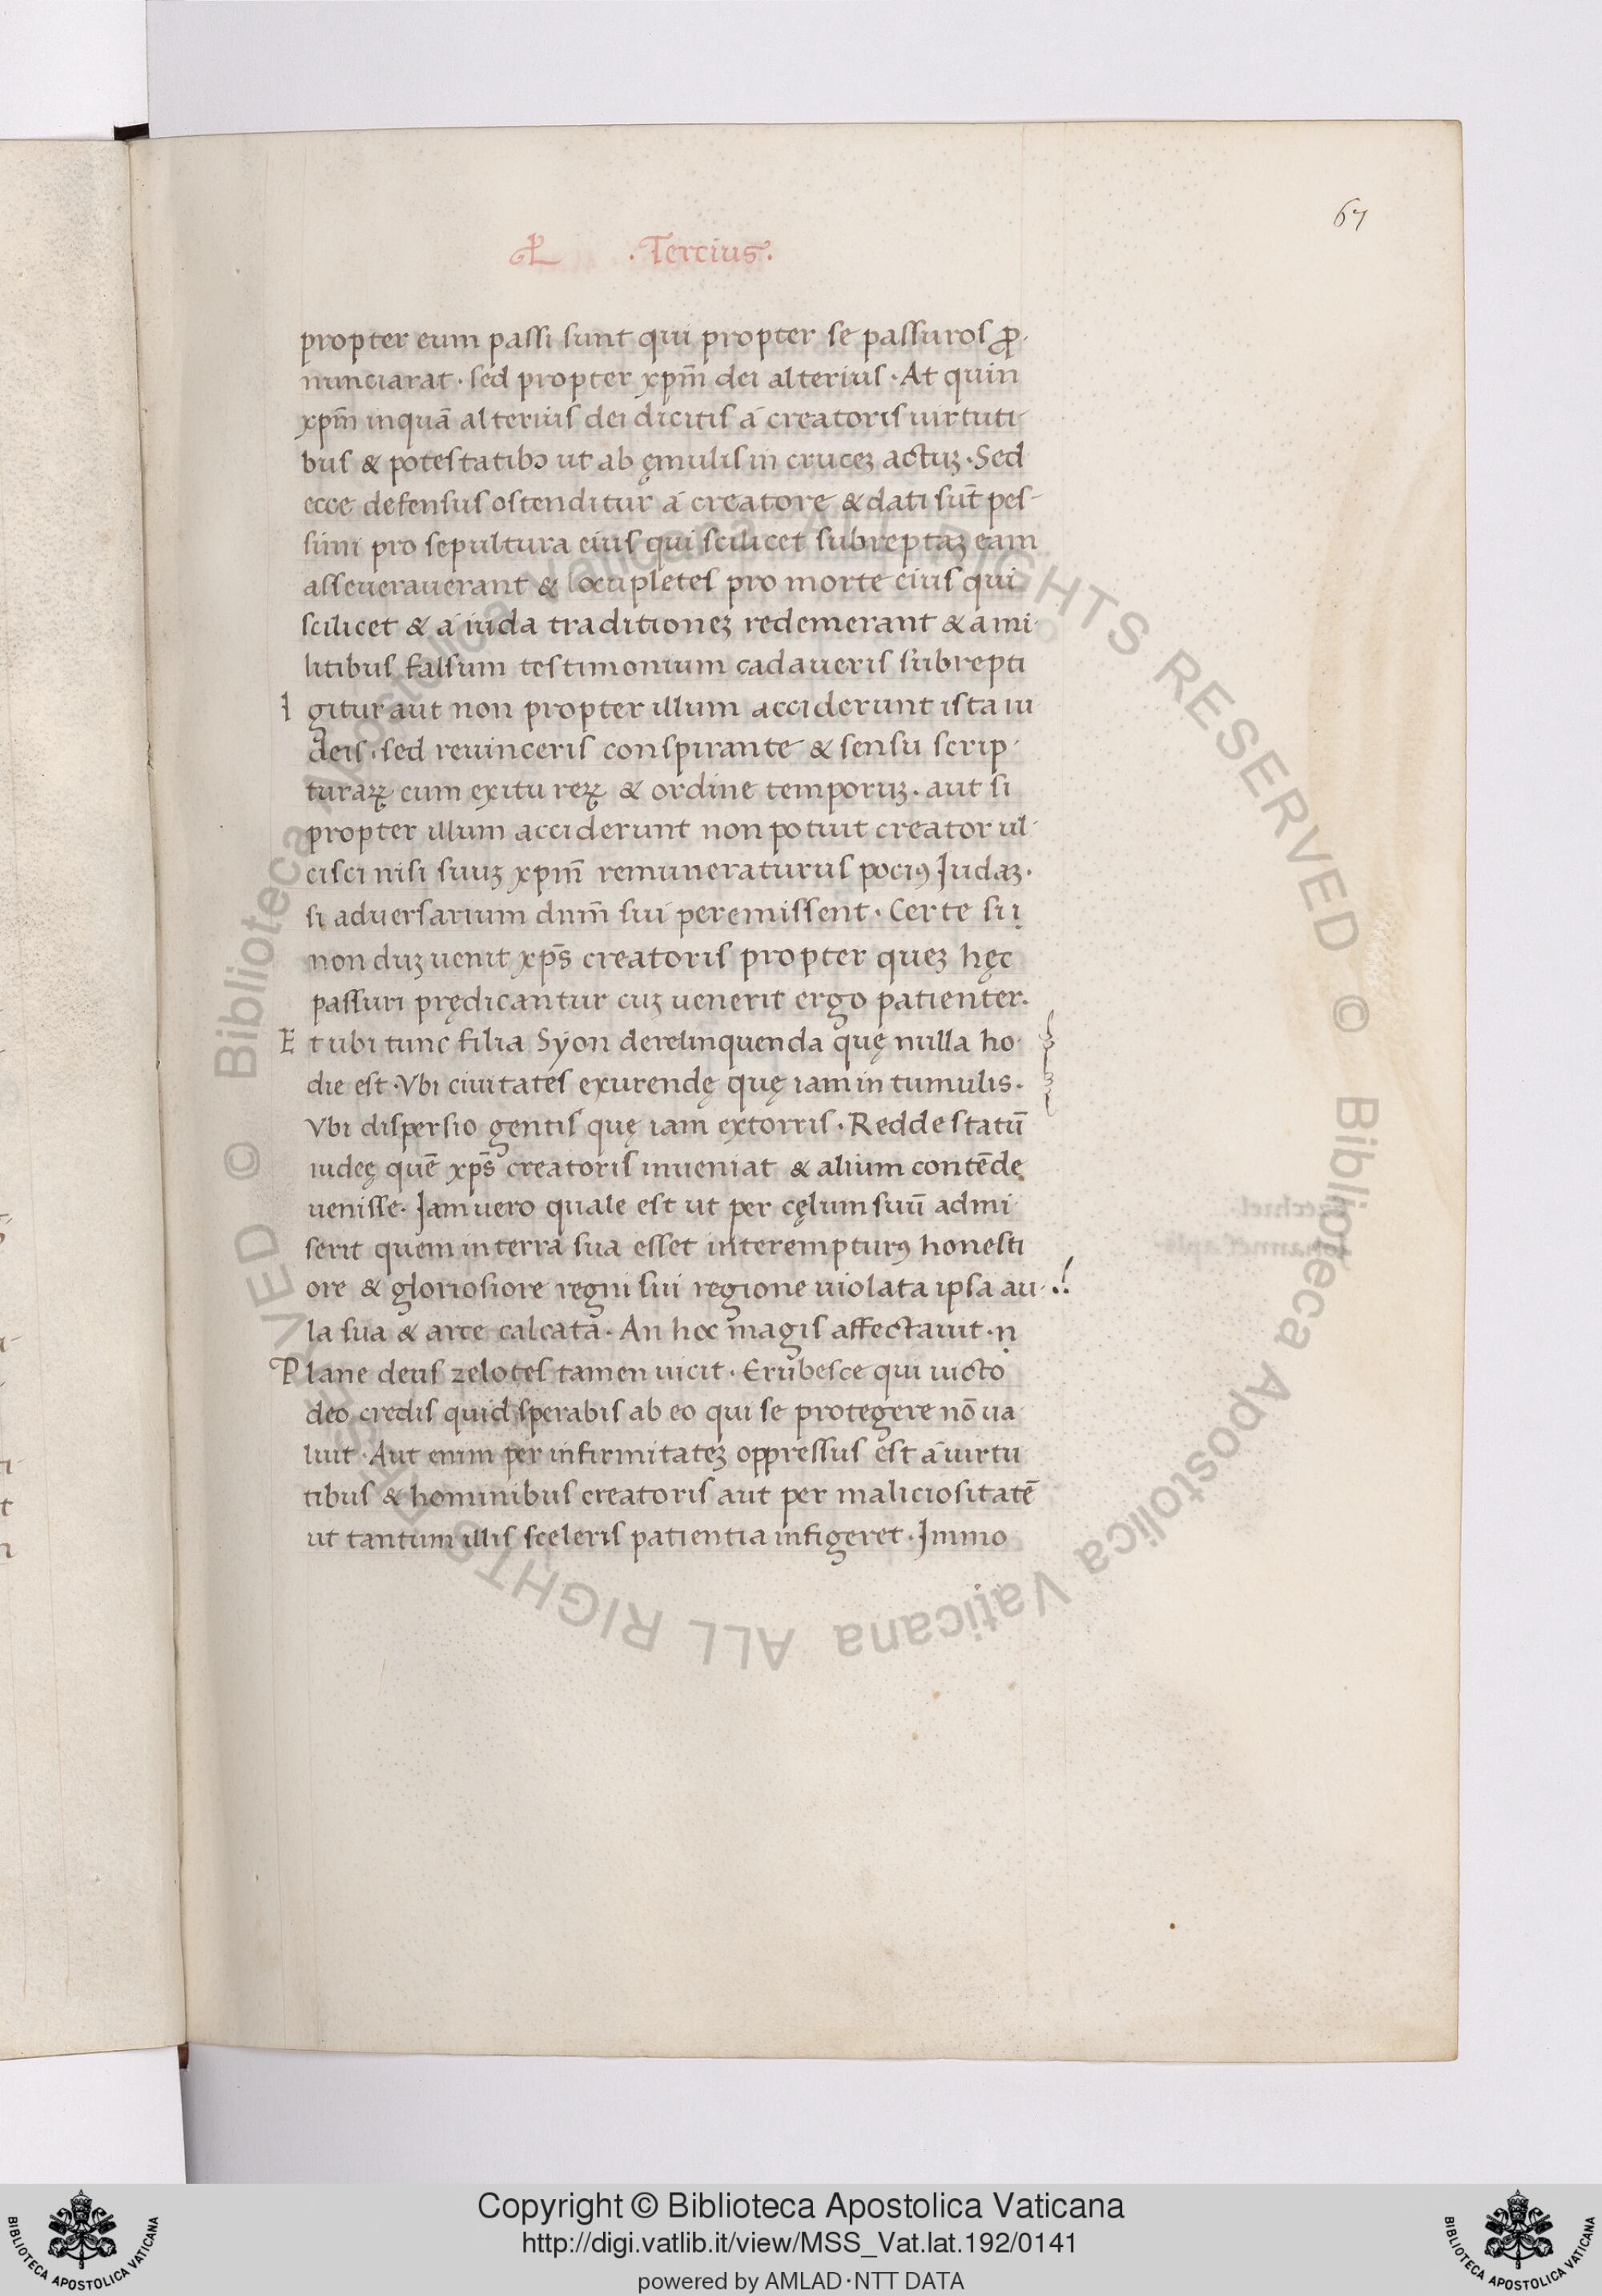 67
.Tercius.
propter eum passi sunt qui propter se passuros ꝓ-
nunciarat · sed propter xpm̄ dei alterius · At quin
xpm̄ inquā alterius dei dicitis á creatoris uirtuti-
bus & potestatibꝫ ut ab ęmulis in cruceꝫ actuꝫ · Sed
ecce defensus ostenditur á creatore & dati sūt pes-
simi pro sepultura eius qui scilicet subreptaꝫ eam
asseuerauerant & locupletes pro morte eius qui
scilicet & á iuda traditioneꝫ redemerant & a mi-
litibus falsum testimonium cadaueris subrepti
Igitur aut non propter illum acciderunt ista iu
deis · sed reuinceris conspirante & sensu scrip-
turaꝝ cum exitu reꝝ & ordine temporuꝫ · aut si
propter illum acciderunt non potuit creator ul-
cisci nisi suuꝫ xpm̄ remuneraturus pociꝰ Judaꝫ ·
si aduersarium dnm̄ sui peremissent · Certe si i
non duꝫ uenit xp̄s creatoris propter queꝫ hęc
passuri prędicantur cuꝫ uenerit ergo patienter.
Et ubi tunc filia Syon derelinquenda quę nulla ho-
die est · Vbi ciuitates exurendę quę iam in tumulis ·
Vbi dispersio gentis quę iam extorris · Redde statū
iudeę quē xp̄s creatoris inueniat & alium contēde
uenisse · Jam uero quale est ut per cęlum suū admi-
serit quem in terra sua esset interempturꝰ honesti
ore & gloriosiore regni sui regione uiolata ipsa au-
la sua & arce calcata · An hoc magis affectauit · n
Plane deus zelotes tamen uicit · Erubesce qui uicto
deo credis quid sperabis ab eo qui se protegere nō ua
luit · Aut enim per infirmitateꝫ oppressus est á uirtu
tibus & hominibus creatoris aut per maliciositatē
ut tantum illis sceleris patientia infigeret · Jmmo
Biblioteca Apostolica Vaticana ALL RIGHTS RESERVED ©
Biblioteca Apostolica Vaticana ALL RIGHTS RESERVED ©
Copyright © Biblioteca Apostolica Vaticana
http://digi.vatlib.it/view/MSS_Vat.lat.192/0141
powered by AMLAD·NTT DATA
BIBLIOTECA APOSTOLICA VATICANA
BIBLIOTECA APOSTOLICA VATICANA